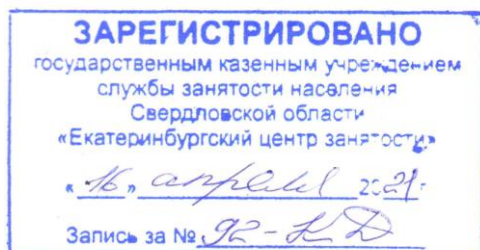 ЗАРЕГИСТРИРОВАНО
государственным казенным учреждением
службы занятости населения
Свердловской области
«Екатеринбургский центр занятости»
«16» апреля 2021г
Запись за № 92-КД